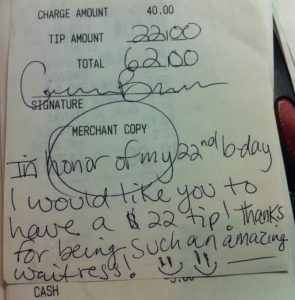 CHARGE AMOUNT 40.00
TIP AMOUNT 22.00
TOTAL 62.00
SIGNATURE
MERCHANT COPY
In honor of my 22nd b-day
I would like you to
have a $22 tip! Thanks
for being such an amazing
waitress!
CASH